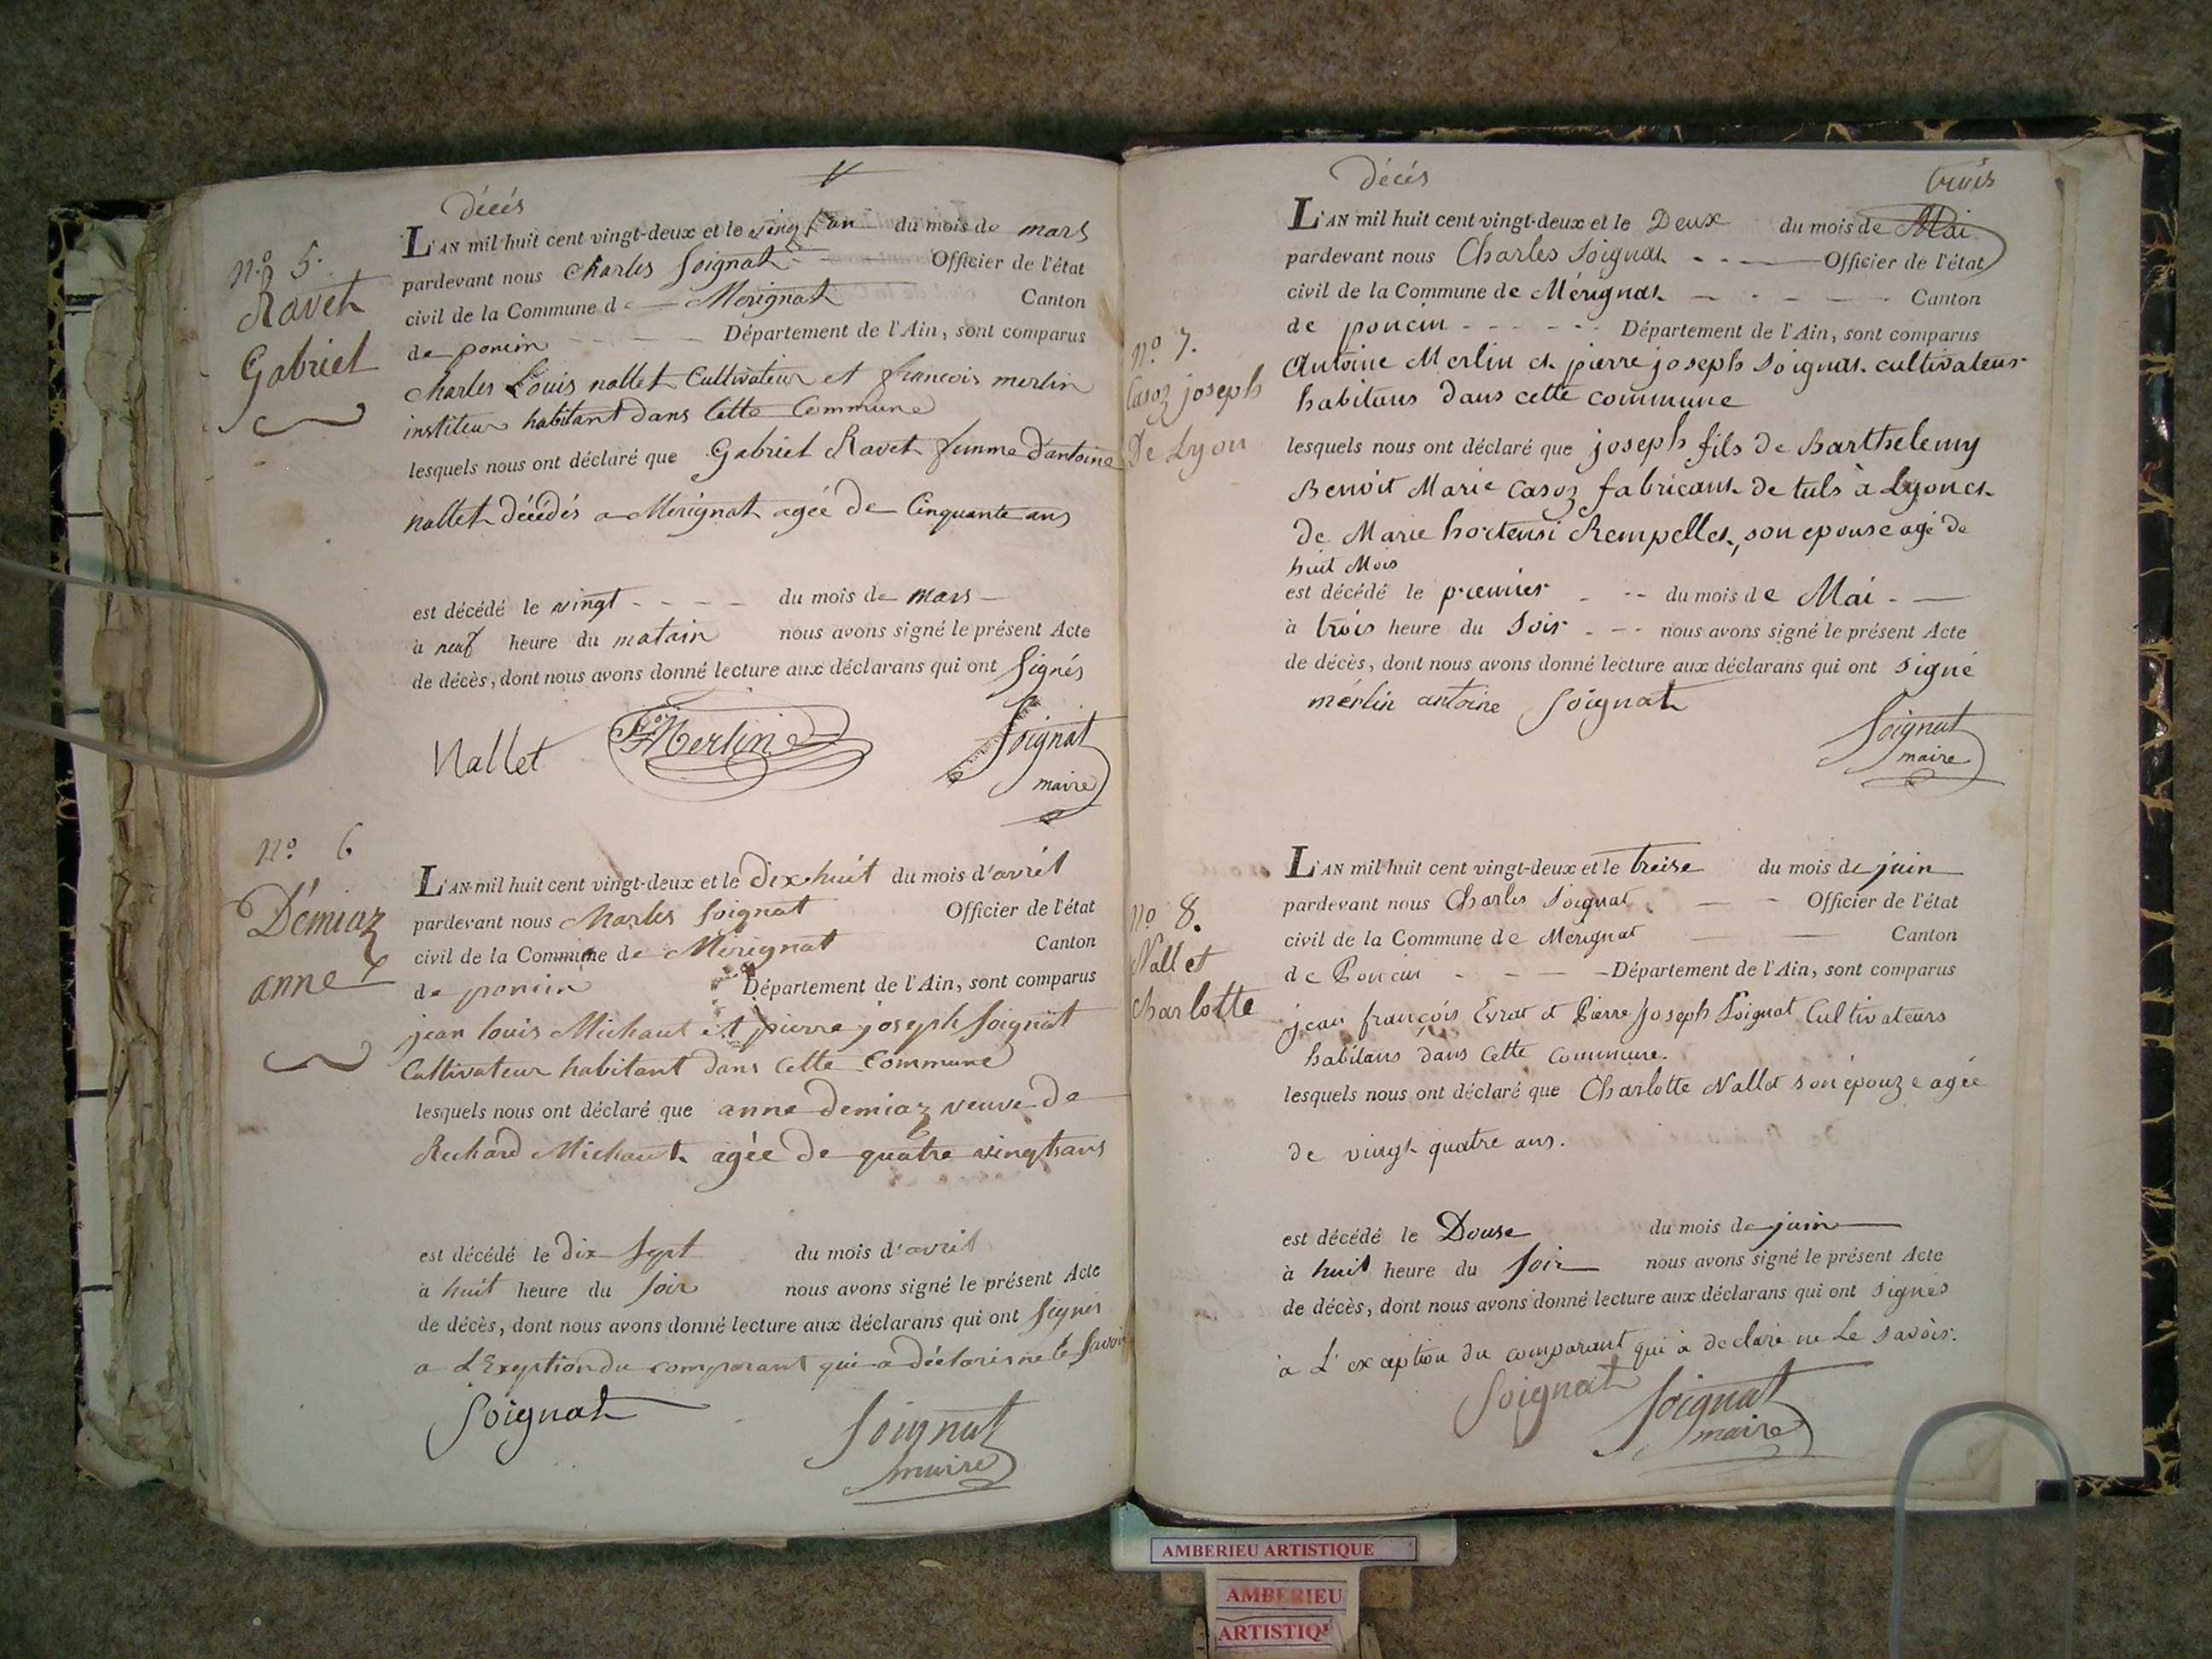 décés
nº 5.
Ravet
Gabriel
L'AN mil huit cent vingt-deux et le vingt un du mois de mars
pardevant nous Charles Soignat Officier de l'état
civil de la Commune de Mérignat Canton
de poncin Département de l'Ain, sont comparus
Charles Louis nallet Cultivateur et francois merlin
instituteur habitant dans Cette Commune
lesquels nous ont déclaré que Gabriel Ravet femme d'antoine
nallet décédés a Mérignat agée de Cinquante ans
est décédé le vingt du mois de mars
à neuf heure du matain nous avons signé le présent Acte
de décès, dont nous avons donné lecture aux déclarans qui ont Signés
Nallet Merlin Soignat
maire
nº 6
Démiaz
anne
L'AN mil huit cent vingt-deux et le dix huit du mois d'avril
pardevant nous Charles Soignat Officier de l'état
civil de la Commune de Mérignat Canton
de poncin Département de l'Ain, sont comparus
jean louis Michaut et pierre joseph Soignat
Cultivateur habitant dans Cette Commune
lesquels nous ont déclaré que anne demiaz veuve de
Richard Michaut agée de quatre vingt ans
est décédé le dix Sept du mois d'avril
à huit heure du Soir nous avons signé le présent Acte
de décès, dont nous avons donné lecture aux déclarans qui ont Signés
a L'Exeption du comparant qui a déclaris ne le Savoir
Soignat Soignat
maire
décés trois
nº 7.
Casoz joseph
De Lyon
L'AN mil huit cent vingt-deux et le Deux du mois de Mai
pardevant nous Charles Soignat Officier de l'état
civil de la Commune de Mérignat Canton
de poncin Département de l'Ain, sont comparus
Antoine Merlin et pierre joseph Soignat cultivateur
habitans dans cette commune
lesquels nous ont déclaré que joseph fils de Barthelemy
Benoit Marie Casoz fabricant de tuls à Lyon et
de Marie hortensi Rempelles, son epouse agé de
huit Mois
est décédé le premier du mois de Mai
à trois heure du Soir nous avons signé le présent Acte
de décès, dont nous avons donné lecture aux déclarans qui ont signé
merlin antoine Soignat
Soignat
maire
nº 8.
Nallet
Charlotte
L'AN mil huit cent vingt-deux et le treise du mois de juin
pardevant nous Charles Soignat Officier de l'état
civil de la Commune de Merignat Canton
de Poncin Département de l'Ain, sont comparus
jean françois Evrat et Pierre Joseph Soignat Cultivateurs
habitans dans cette commune.
lesquels nous ont déclaré que Charlotte Nallet son épouze agée
de vingt quatre ans.
est décédé le Douse du mois de juin
à huit heure du Soir nous avons signé le présent Acte
de décès, dont nous avons donné lecture aux déclarans qui ont signés
à L'exception du comparant qui à declaré ne Le savoir.
Soignat Soignat
maire
AMBERIEU ARTISTIQUE
AMBERIEU
ARTISTIQU